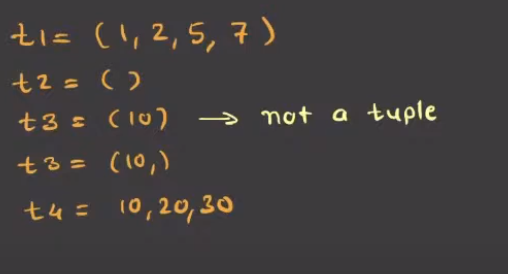 t1 = (1, 2, 5, 7)
t2 = ()
t3 = (10) → not a tuple
t3 = (10,)
t4 = 10, 20, 30